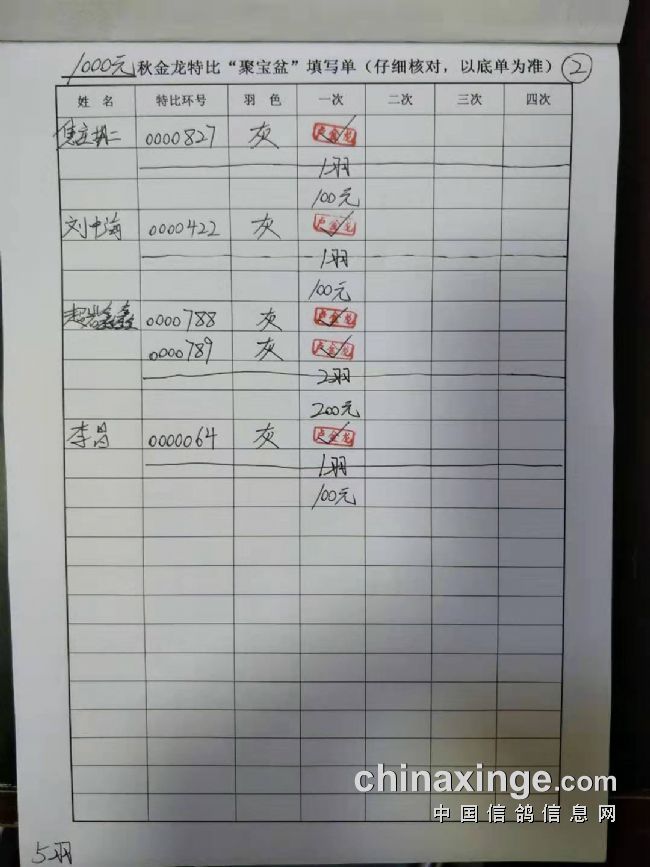 1000元 秋金龙特比“聚宝盆”填写单（仔细核对，以底单为准） ②
姓 名 特比环号 羽 色 一次 二次 三次 四次
0000827 灰 卢金龙
1羽
100元
刘中海 0000422 灰 卢金龙
1羽
100元
0000788 灰 卢金龙
0000789 灰 卢金龙
2羽
200元
李昌 0000064 灰 卢金龙
1羽
100元
chinaxinge.com
中国信鸽信息网
5羽